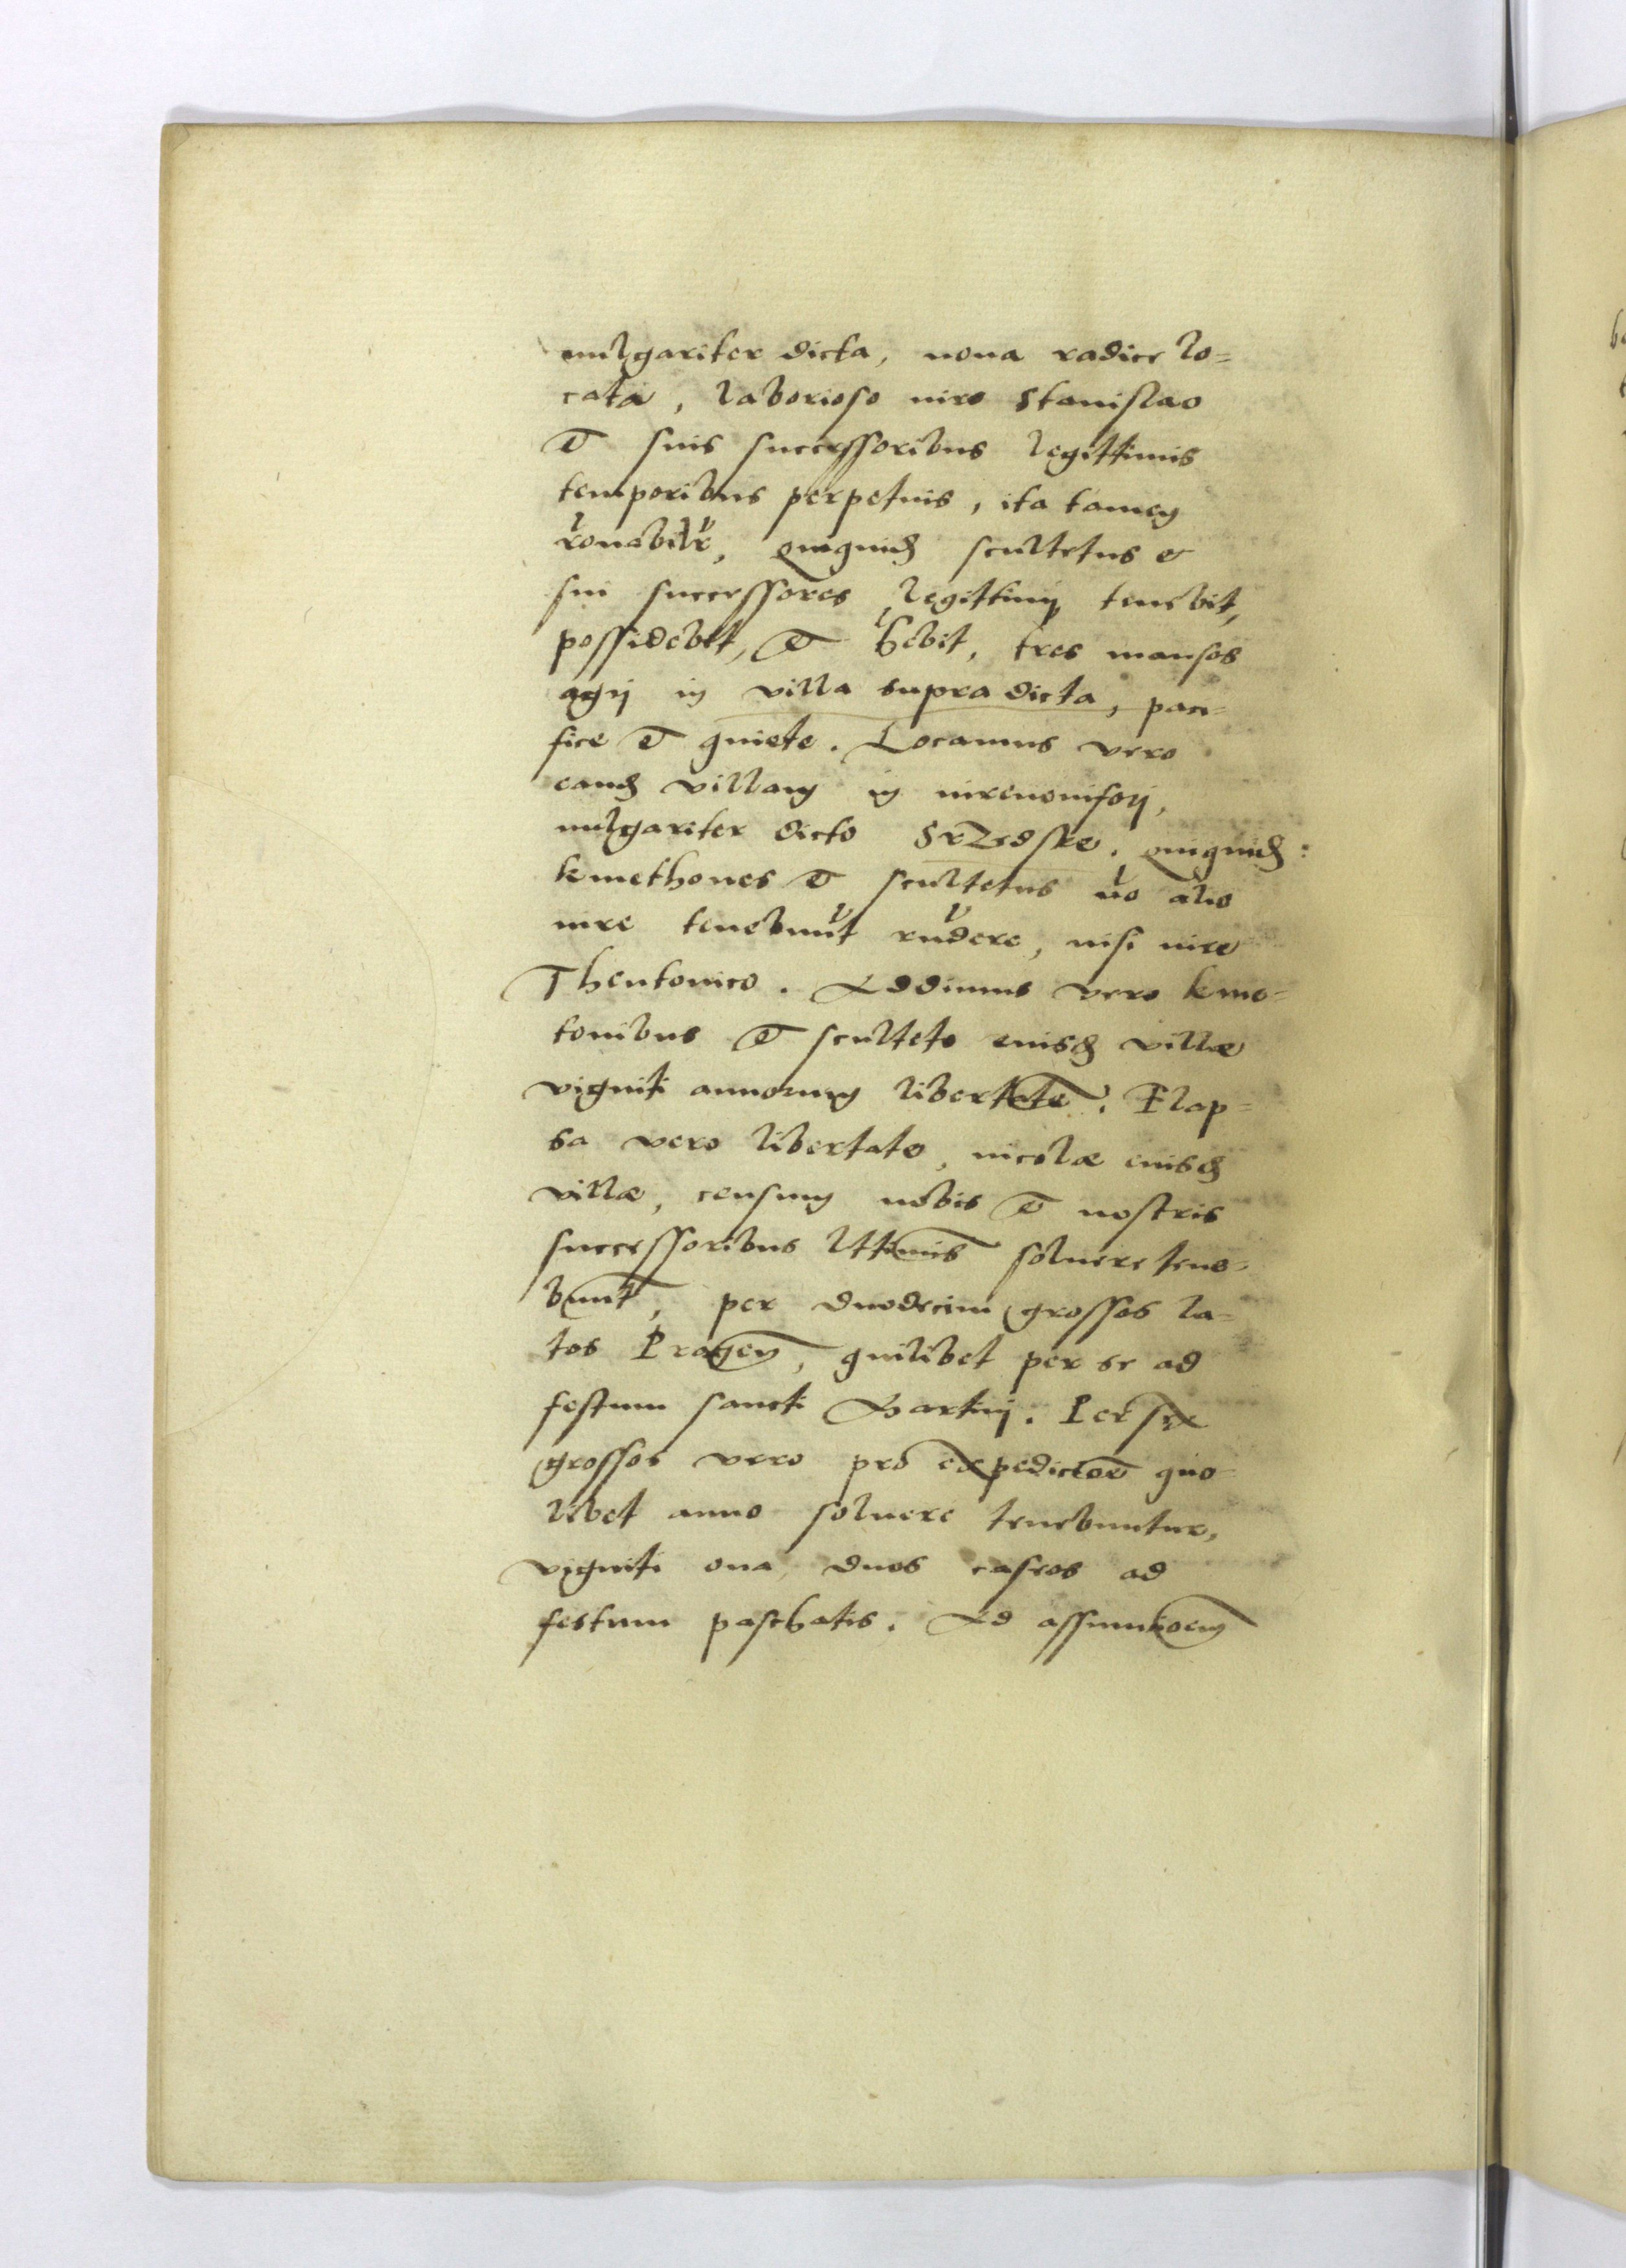 uulgariter dicta, noua radice lo=
cata, laborioso uiro Stanislao
et suis successoribus legittimis
temporibus perpetuis, ita tamen
quiquid scultetus et
sui successores legittimi tenebit,
possidebit, et hebit, tres mansos
agri in villa supra dicta, paci=
fice et quiete. Locamus vero
eand villam in iure nouifori,
uulgariter dicto Srzedske. quiquid:
kmethones et scultetus no alio
iure tenebunt rndere, nisi iure
Theutonico. Addimus vero kme=
tonibus et sculteto eiusd villæ
viginti annorum libertate. Elap=
sa vero libertate, incolæ eiusd
villæ, censum nobis et nostris
successoribus lttimis soluere tene=
bunt, per duodecim grossos la=
tos Pragen, quilibet per se ad
festum sancti Martini. Per sex
grossos vero pro expedictoe quo=
libet anno soluere tenebuntur,
viginti oua, duos caseos ad
festum paschatis. Ad assumtioem